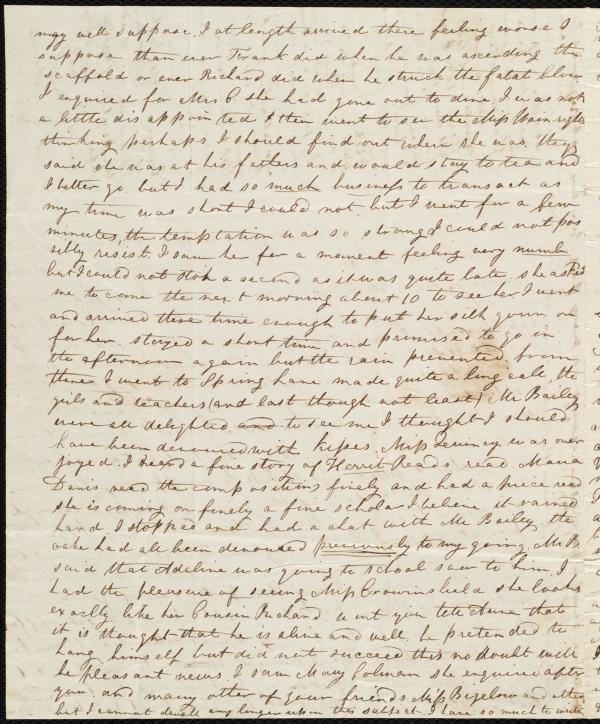 may well suppose. I at length arrived there feeling worse I
suppose than ever Frank did when he was ascending the
scaffold or ever Richard did when he struck the fatal blow
I enquired for Mrs C she had gone out to dine I was not
a little disappointed I then went to see the Miss Wainrights
thinking perhaps I should find out where she was. they
said she was at his fathers and would stay to tea and
I better go. but I had so much business to transact as
my time was short I could not. but I went for a few
minutes, the temptation was so strong I could not pos
sibly resist. I saw her for a moment feeling very numb
but I could not stop a second as it was quite late. she asked
me to come the next morning about 10 to see her. I went
and arrived there time enough to put her silk gown on
for her. stayed a short time and promised to go in
the afternoon again but the rain prevented from
there I went to Spring Lane made quite a long call, the
girls and teachers (and last though not least) Mr Bailey
were all delighted and to see me I thought I should
have been devoured with kisses. Miss Quincy was over
joyed. I heard a fine story of Reads read. Maria
Davis read the compositions finely and had a piece read
she is coming on finely a fine scholar I believe it varied
hand. I stopped and had a chat with Mr Bailey the
cake had all been devoured previously to my going. Mr B
said that Adeline was going to school soon to him. I
had the pleasure of seeing Miss Crowninshield she looks
exactly like her Cousin Richard. wont you tell that
it is thought that he is alive and well. he pretended to
hang himself but did not succeed this no doubt will
be pleasant news. I saw Mary Colman she enquired after
you. and many other of your friends Miss Bigelow and
but I cannot dwell any longer upon this subject I have so much to write